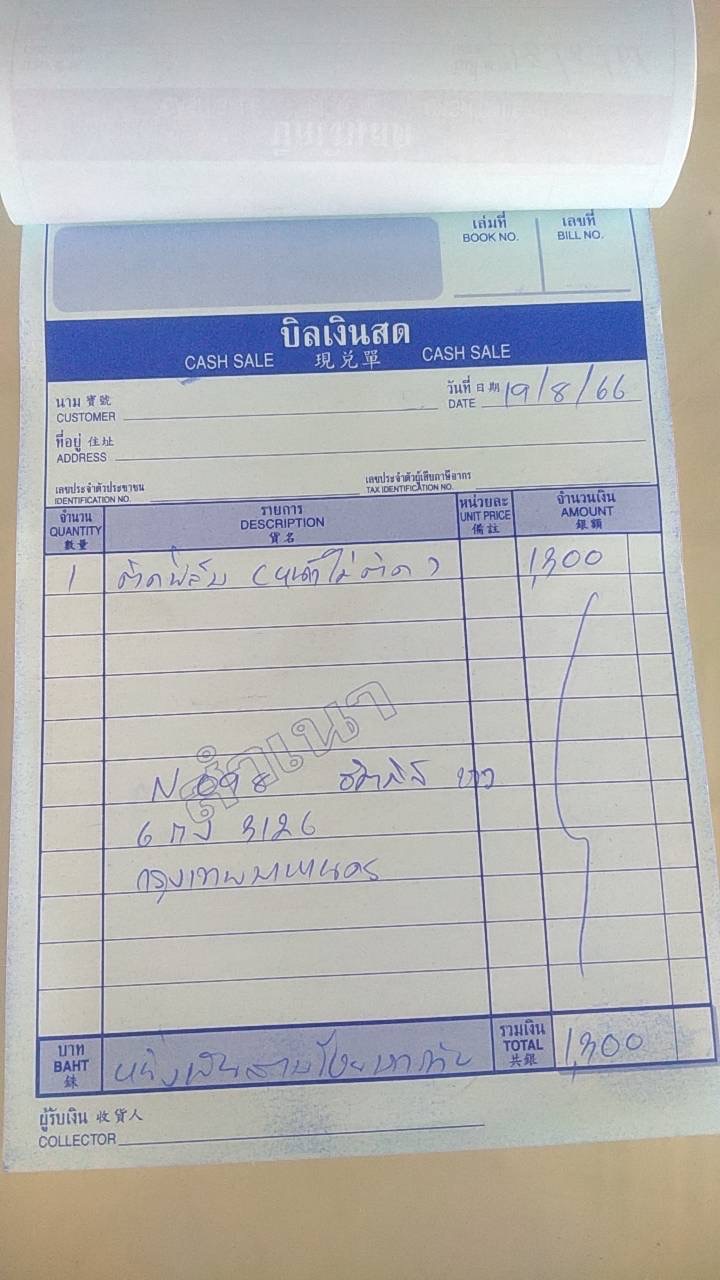 เล่มที่ เลขที่
BOOK NO. BILL NO.
บิลเงินสด
CASH SALE 現兌單 CASH SALE
นาม 寶號
CUSTOMER
วันที่ 日期
DATE 19/8/66
ที่อยู่ 住址
ADDRESS
เลขประจำตัวประชาชน
IDENTIFICATION NO.
เลขประจำตัวผู้เสียภาษีอากร
TAX IDENTIFICATION NO.
จำนวน รายการ หน่วยละ จำนวนเงิน
QUANTITY DESCRIPTION UNIT PRICE AMOUNT
數量 貨名 備註 銀額
1 ติดฟิล์ม (หน้าไม่ติด) 1,300
สำเนา
6 กง 3126
กรุงเทพมหานคร
บาท
BAHT
銖
หนึ่งพันสามร้อยบาทถ้วน
รวมเงิน
TOTAL
共銀
1,300
ผู้รับเงิน 收貨人
COLLECTOR